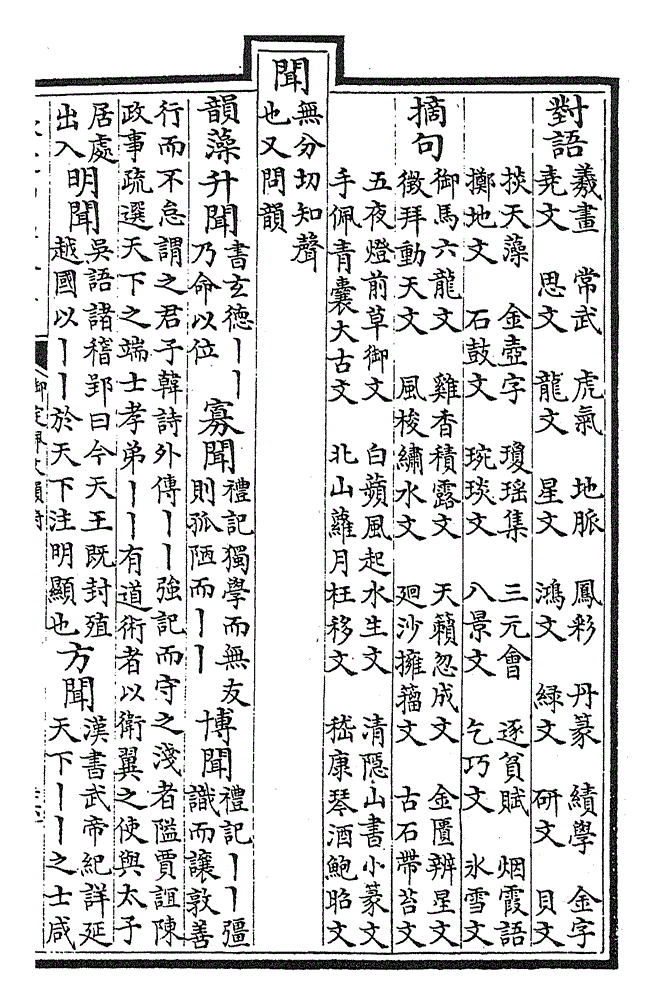 對語
羲畫　常武　虎氣　地脈　鳳彩　丹篆　績學　金字
堯文　思文　龍文　星文　鴻文　緑文　研文　貝文
掞天藻　金壺字　瓊瑶集　三元會　逐貧賦　烟霞語
擲地文　石鼓文　琬琰文　八景文　乞巧文　氷雪文
摘句
御馬六龍文　雞香積露文　天籟忽成文　金匱辨星文
徵拜動天文　風梭繡水文　廻沙擁籀文　古石帶苔文
五夜燈前草御文　白蘋風起水生文　清隠山書小篆文
手佩青囊大古文　北山蘿月枉移文　嵇康琴酒鮑昭文
聞
無分切知聲
也又問韻
韻藻升聞
書玄德丨丨
乃命以位
寡聞
禮記獨學而無友
則孤陋而丨丨
博聞
禮記丨丨彊
識而讓敦善
行而不怠謂之君子韓詩外傳丨丨強記而守之淺者隘賈誼陳
政事疏選天下之端士孝弟丨丨有道術者以衛翼之使與太子
居處
出入
明聞
吳語諸稽郢曰今天王既封殖
越國以丨丨於天下注明顯也
方聞
漢書武帝紀詳延
天下丨丨之士咸